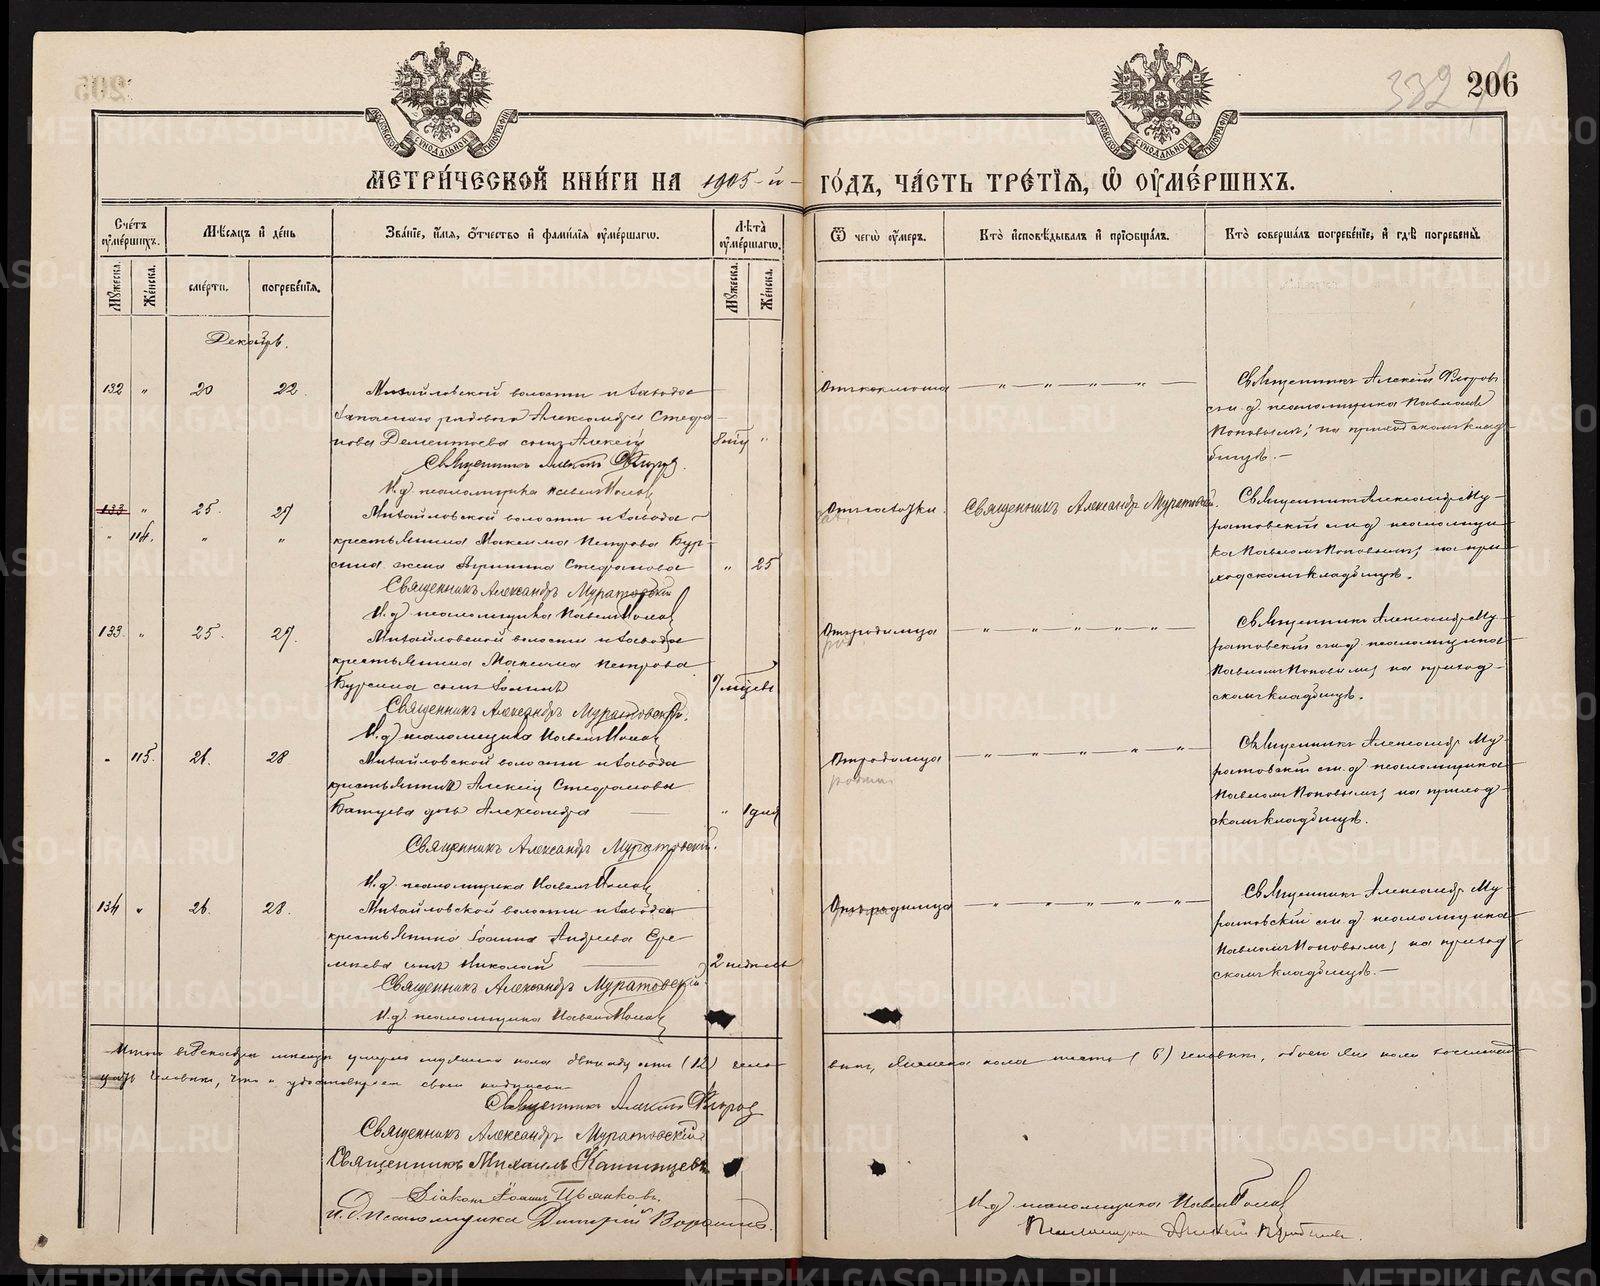 206
МЕТРИ́ЧЕСКОЙ КНИ́ГИ НА 1905-й ГО́ДЪ, ЧА́СТЬ ТРЕ́ТІѦ, Ѡ҆ ОУ҆МЕ́РШИХЪ.
Сче́тъ оу҆ме́ршихъ.
Мѣ́сѧцъ и҆ де́нь
Зва́нїе, и҆́мѧ, ѻ҆́тчество и҆ фами́лїѧ оу҆ме́ршагѡ.
Лѣ́та оу҆ме́ршагѡ.
Ѿ чегѡ̀ оу҆́меръ.
Кто̀ и҆сповѣ́дывалъ и҆ прїѡбща́лъ.
Кто̀ соверша́лъ погребе́нїе, и҆ гдѣ̀ погребены̀.
Мꙋ́жеска.
Же́нска.
сме́рти.
погребе́нїѧ.
Мꙋ́жеска.
Же́нска.
Декабрь.
132 " 20 22
Михайловской волости и завода
запаснаго рядового Александра Стефа-
нова Дементьева сынъ Алексій
"
Священникъ Алексій
И.д. псаломщика Павелъ Поповъ
Священникъ Алексій
и и.д. псаломщика Павломъ
Поповымъ; на приходскомъ клад-
бищѣ.
133 " 25. 27
" 114. " "
Михайловской волости и завода
крестьянина Максима Петрова Бур-
сина жена Стефанова
" 25
Священникъ Александръ Муратовскій
И.д. псаломщика Павелъ Поповъ
Отъ чахотки.
Священникъ Александръ Муратовскій.
Священникъ Александръ Му-
ратовскій и и.д. псаломщи-
ка Павломъ Поповымъ; на при-
ходскомъ кладбищѣ.
133. " 25. 27.
Михайловской волости и завода
крестьянина Максима Петрова
Бурсина сынъ Іоаннъ
Священникъ Александръ Муратовскій.
И.д. псаломщика Павелъ Поповъ
Отъ родимца
Священникъ Александръ Му-
ратовскій и и.д. псаломщика
Павломъ Поповымъ; на приход-
скомъ кладбищѣ.
" 115. 26. 28
Михайловской волости и завода
крестьянина Алексія Стефанова
Батуева дочь Александра
" 1 дня
Священникъ Александръ Муратовскій.
И.д. псаломщика Павелъ Поповъ
Отъ родимца
Священникъ Александръ Му-
ратовскій и и.д. псаломщика
Павломъ Поповымъ; на приход-
скомъ кладбищѣ.
134 " 26. 28.
Михайловской волости и завода
крестьянина Іоанна Андреева Ере-
меева сынъ Николай
2 недѣль
Священникъ Александръ Муратовскій.
И.д. псаломщика Павелъ Поповъ
Отъ родимца
Священникъ Александръ Му-
ратовскій и и.д. псаломщика
Павломъ Поповымъ; на приход-
скомъ кладбищѣ.
Итого въ Декабрѣ мѣсяцѣ умерло мужеска пола двѣнадцать (12) чело-
вѣкъ, женска пола шесть (6) человѣкъ, обоего пола восемнад-
цать человѣкъ, что и удостовѣряемъ своею подписью
Священникъ Алексій
Священникъ Александръ Муратовскій
Священникъ Михаилъ
Діаконъ Іоаннъ
И.д. псаломщика Дмитрій
И.д. псаломщика Павелъ Поповъ
Псаломщикъ Алексій
METRIKI.GASO-URAL.RU